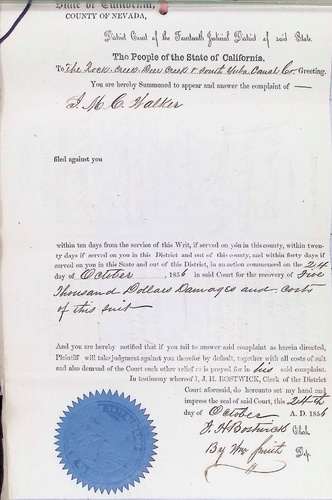 State of California,
COUNTY OF NEVADA,
District Court of the Fourteenth Judicial District of said State.
The People of the State of California.
To The Rock Creek Deer Creek & South Yuba Canal Co., Greeting.
You are hereby Summoned to appear and answer the complaint of
J. M. C. Walker
filed against you
within ten days from the service of this Writ, if served on you in this county, within twen-
ty days if served on you in this District and out of this county, and within forty days if
served on you in this State and out of this District, in an action commenced on the 24
day of October , 1856 in said Court for the recovery of Five
Thousand Dollars Damages and costs
of this suit
And you are hereby notified that if you fail to answer said complaint as herein directed,
Plaintiff will take judgment against you therefor by default, together with all costs of suit
and also demand of the Court such other relief as is prayed for in his said complaint.
In testimony whereof I, J. H. BOSTWICK, Clerk of the District
Court aforesaid, do hereunto set my hand and
impress the seal of said Court, this 24th
day of October A. D. 1856
J. H Bostwick Clerk
By Wm Smith Dep